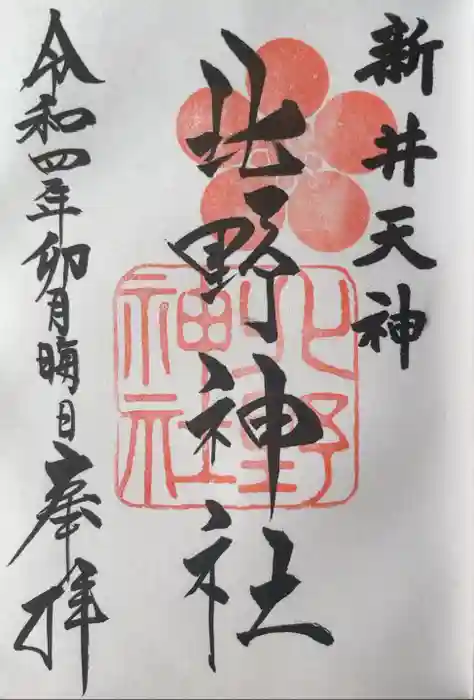 新井天神
北野神社
北野神社
令和四年卯月晦日奉拝